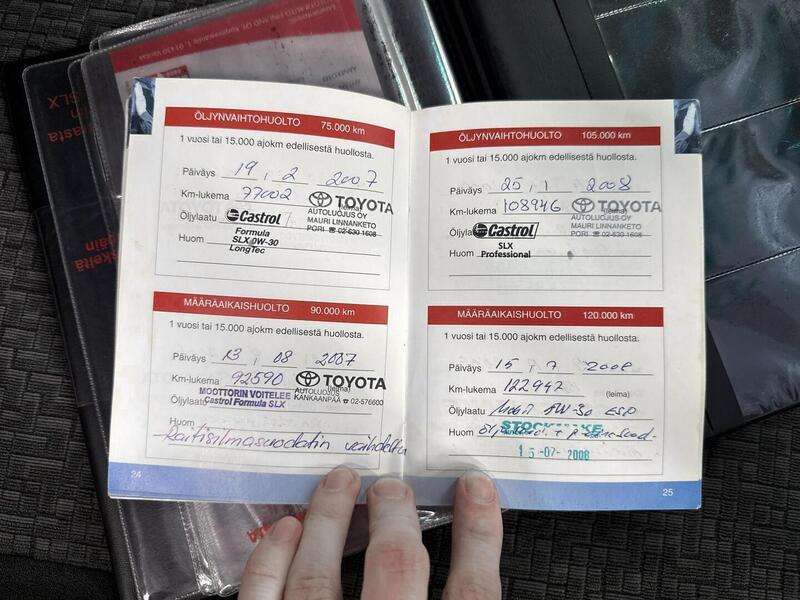 ÖLJYNVAIHTOHUOLTO 75.000 km
1 vuosi tai 15.000 ajokm edellisestä huollosta.
Päiväys 19 , 2 2007
Km-lukema 77002 (leima)
TOYOTA
AUTOLUOJUS OY
MAURI LINNANKETO
PORI ☎ 02-630 1608
Öljylaatu Castrol
Formula
SLX 0W-30
LongTec
Huom
MÄÄRÄAIKAISHUOLTO 90.000 km
1 vuosi tai 15.000 ajokm edellisestä huollosta.
Päiväys 13 , 08 2007
Km-lukema 92590 (leima)
TOYOTA
AUTOLUOJUS
KANKAANPÄÄ ☎ 02-576600
MOOTTORIN VOITELEE
Öljylaatu Castrol Formula SLX
Huom
Raitisilmasuodatin vaihdettu
24
ÖLJYNVAIHTOHUOLTO 105.000 km
1 vuosi tai 15.000 ajokm edellisestä huollosta.
Päiväys 25 , 1 2008
Km-lukema 108946 (leima)
TOYOTA
AUTOLUOJUS OY
MAURI LINNANKETO
PORI ☎ 02-630 1608
Öljyla Castrol
SLX
Professional
Huom
MÄÄRÄAIKAISHUOLTO 120.000 km
1 vuosi tai 15.000 ajokm edellisestä huollosta.
Päiväys 15 , 7 2008
Km-lukema 122942 (leima)
Öljylaatu Mobil 5W-30 ESP
Huom
15-07-2008
25